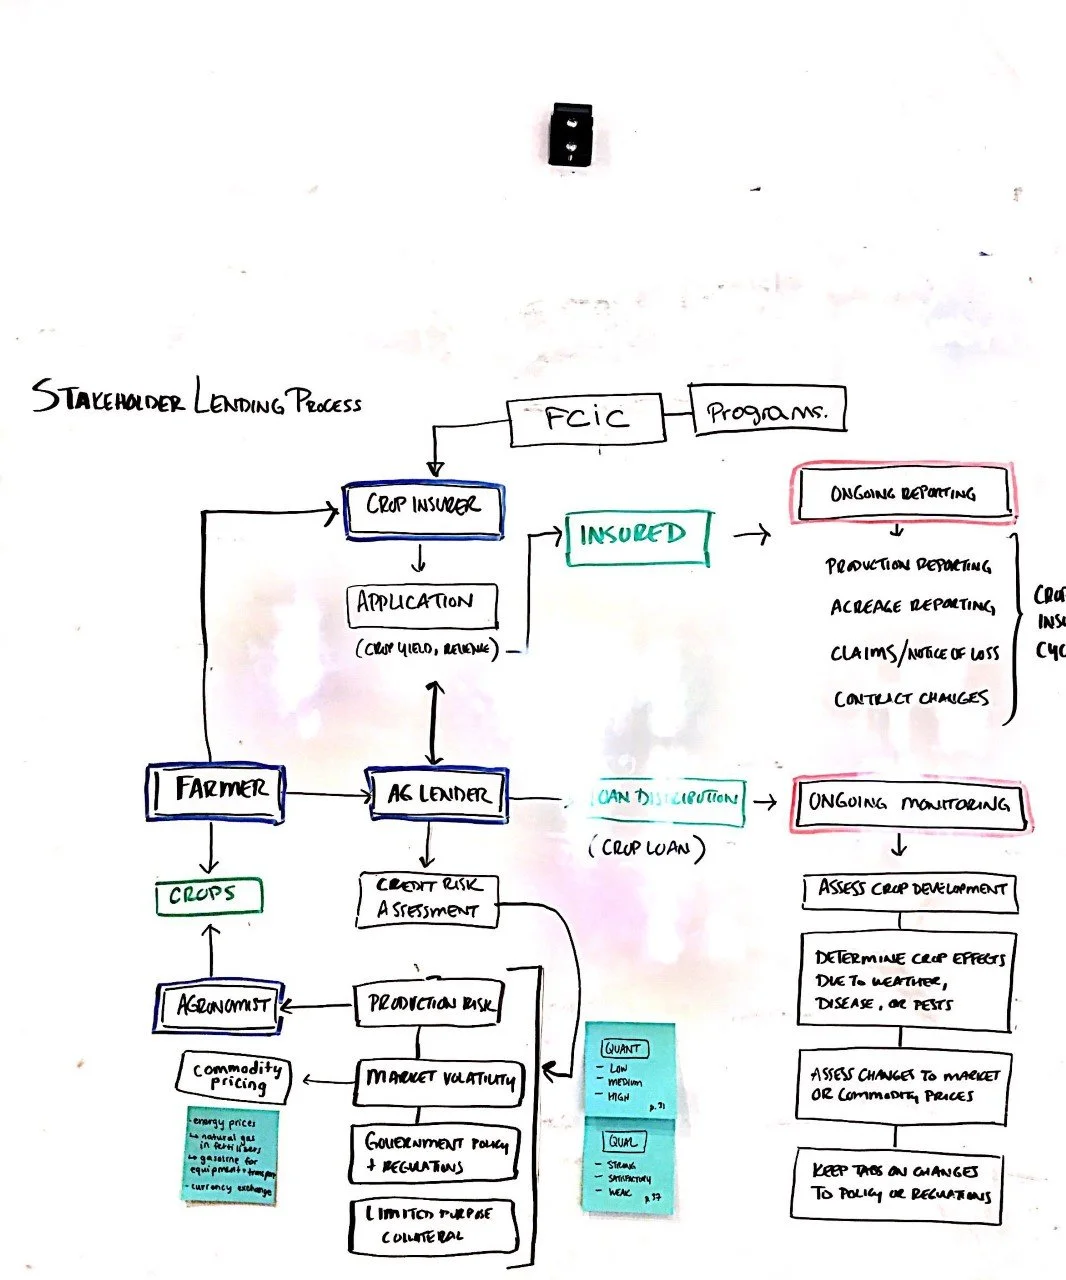 STAKEHOLDER LENDING PROCESS
FCIC
Programs.
CROP INSURER
APPLICATION
(CROP YIELD, REVENUE)
INSURED
ONGOING REPORTING
PRODUCTION REPORTING
ACREAGE REPORTING
CLAIMS/NOTICE OF LOSS
CONTRACT CHANGES
FARMER
AG LENDER
OAN DISTRIBUTION
(CROP LOAN)
ONGOING MONITORING
CROPS
CREDIT RISK
ASSESSMENT
ASSESS CROP DEVELOPMENT
DETERMINE CROP EFFECTS
DUE TO WEATHER,
DISEASE, OR PESTS
AGRONOMIST
PRODUCTION RISK
commodity
pricing
MARKET VOLATILITY
GOVERNMENT POLICY
+ REGULATIONS
LIMITED PURPOSE
COLLATERAL
- energy prices
↳ natural gas
in fertilizers
↳ gasoline for
equipment +
- currency exchange
QUANT
- LOW
- MEDIUM
- HIGH
p.31
QUAL
- STRONG
- SATISFACTORY
- WEAK
p.37
ASSESS CHANGES TO MARKET
OR COMMODITY PRICES
KEEP TABS ON CHANGES
TO POLICY OR REGULATIONS